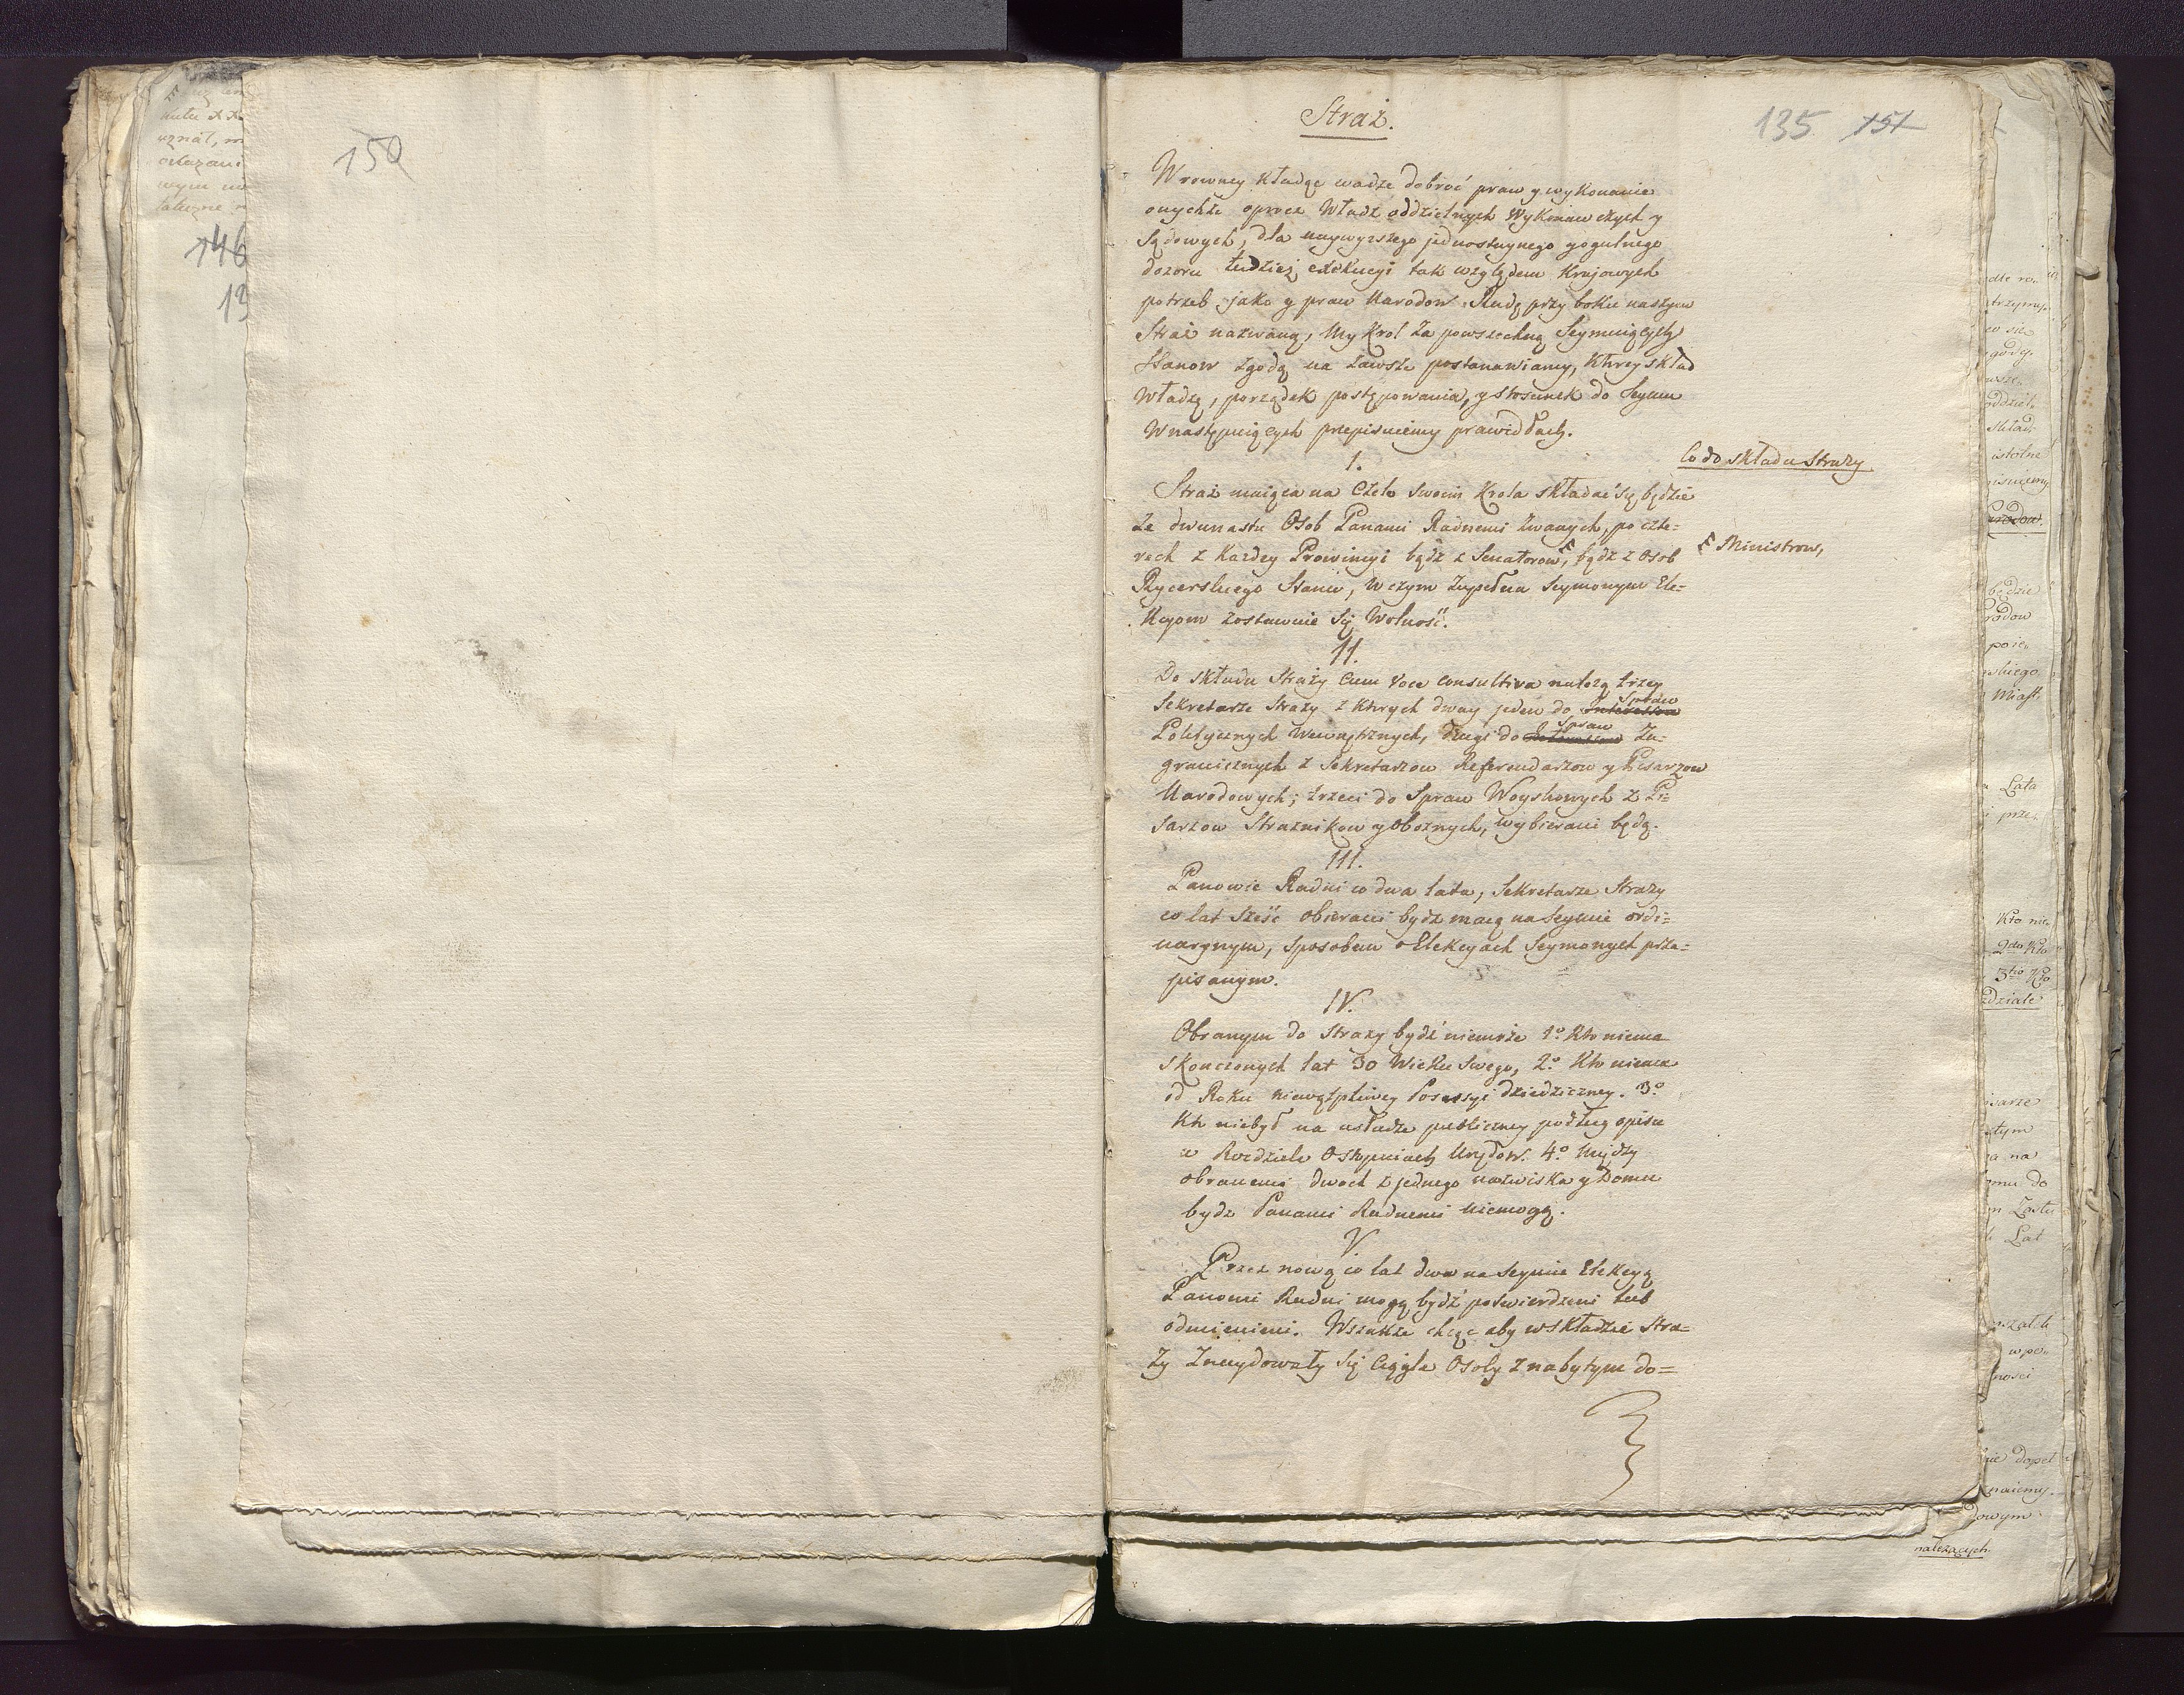 150
146
13
135 151
Straż.
W rowney kładąc wadze dobroć praw y wykonanie
onychże oprocz Władz oddzielnych Wykonawczych y
Sądowych, dla naywyższego jednostaynego y ogulnego
dozoru tudzież exekucyi tak względem Krajowych
potrzeb jako y praw Narodow. Radę przy boku naszym
Straż nazwaną, My Krol za powszechną Seymuiących
Stanow zgodą na zawsze postanawiamy, Ktorey skład
Władzę, porządek postępowania, y stosunek do Seymu
W następuiących przepisuiemy prawidłach.
1.
Co do składu Straży
Straż maiąca na Czele swoim Krola składać się będzie
Ze dwunastu Osob Panami Radnemi zwanych, po czte=
rech z Każdey Prowincyi bądź z Senatorow, bądź z Osob
Ministrow,
Rycerskiego Stanu, w czym zupełna Seymowym Ele=
Kcyom zostawuie się Wolność.
11.
Do składu Straży Cum voce consultiva należą trzey
Sekretarze Straży z Ktorych dway jeden do Interessow Spraw
Politycznych Wewnętrznych, drugi do Spraw Za=
granicznych z Sekretarzow Referendarzow y Pisarzow
Narodowych; trzeci do Spraw Woyskowych z Pi=
sarzow Strażnikow y Oboznych, wybierani będą.
111.
Panowie Radni co dwa lata, Sekretarze Straży
co lat sześć obierani bydź maią na Seymie ordi=
naryynym, sposobem o Elekcyach Seymowych prze=
pisanym.
IV.
Obranym do Straży bydź niemoże 1o. Kto niema
skończonych lat 30 Wieku swego, 2o. Kto niema
od Roku niewątpliwey Possessyi dziedziczney. 3o.
Kto niebył na usłudze publiczney podług opisu
w Rozdziale O stopniach Urzędow. 4o. Między
obranemi dwoch z jednego nazwiska y Domu
bydź Panami Radnemi niemogą.
V.
Przez nową co lat dwa na Seymie Elekcyą
Panowie Radni mogą bydź potwierdzeni lub
odmienieni. Wszakże chcąc aby w składzie Stra=
ży znaydowały się ciągle Osoby z nabytym do=